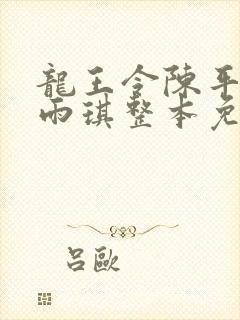 龍王令陳平
雨琪整本免
呂歐